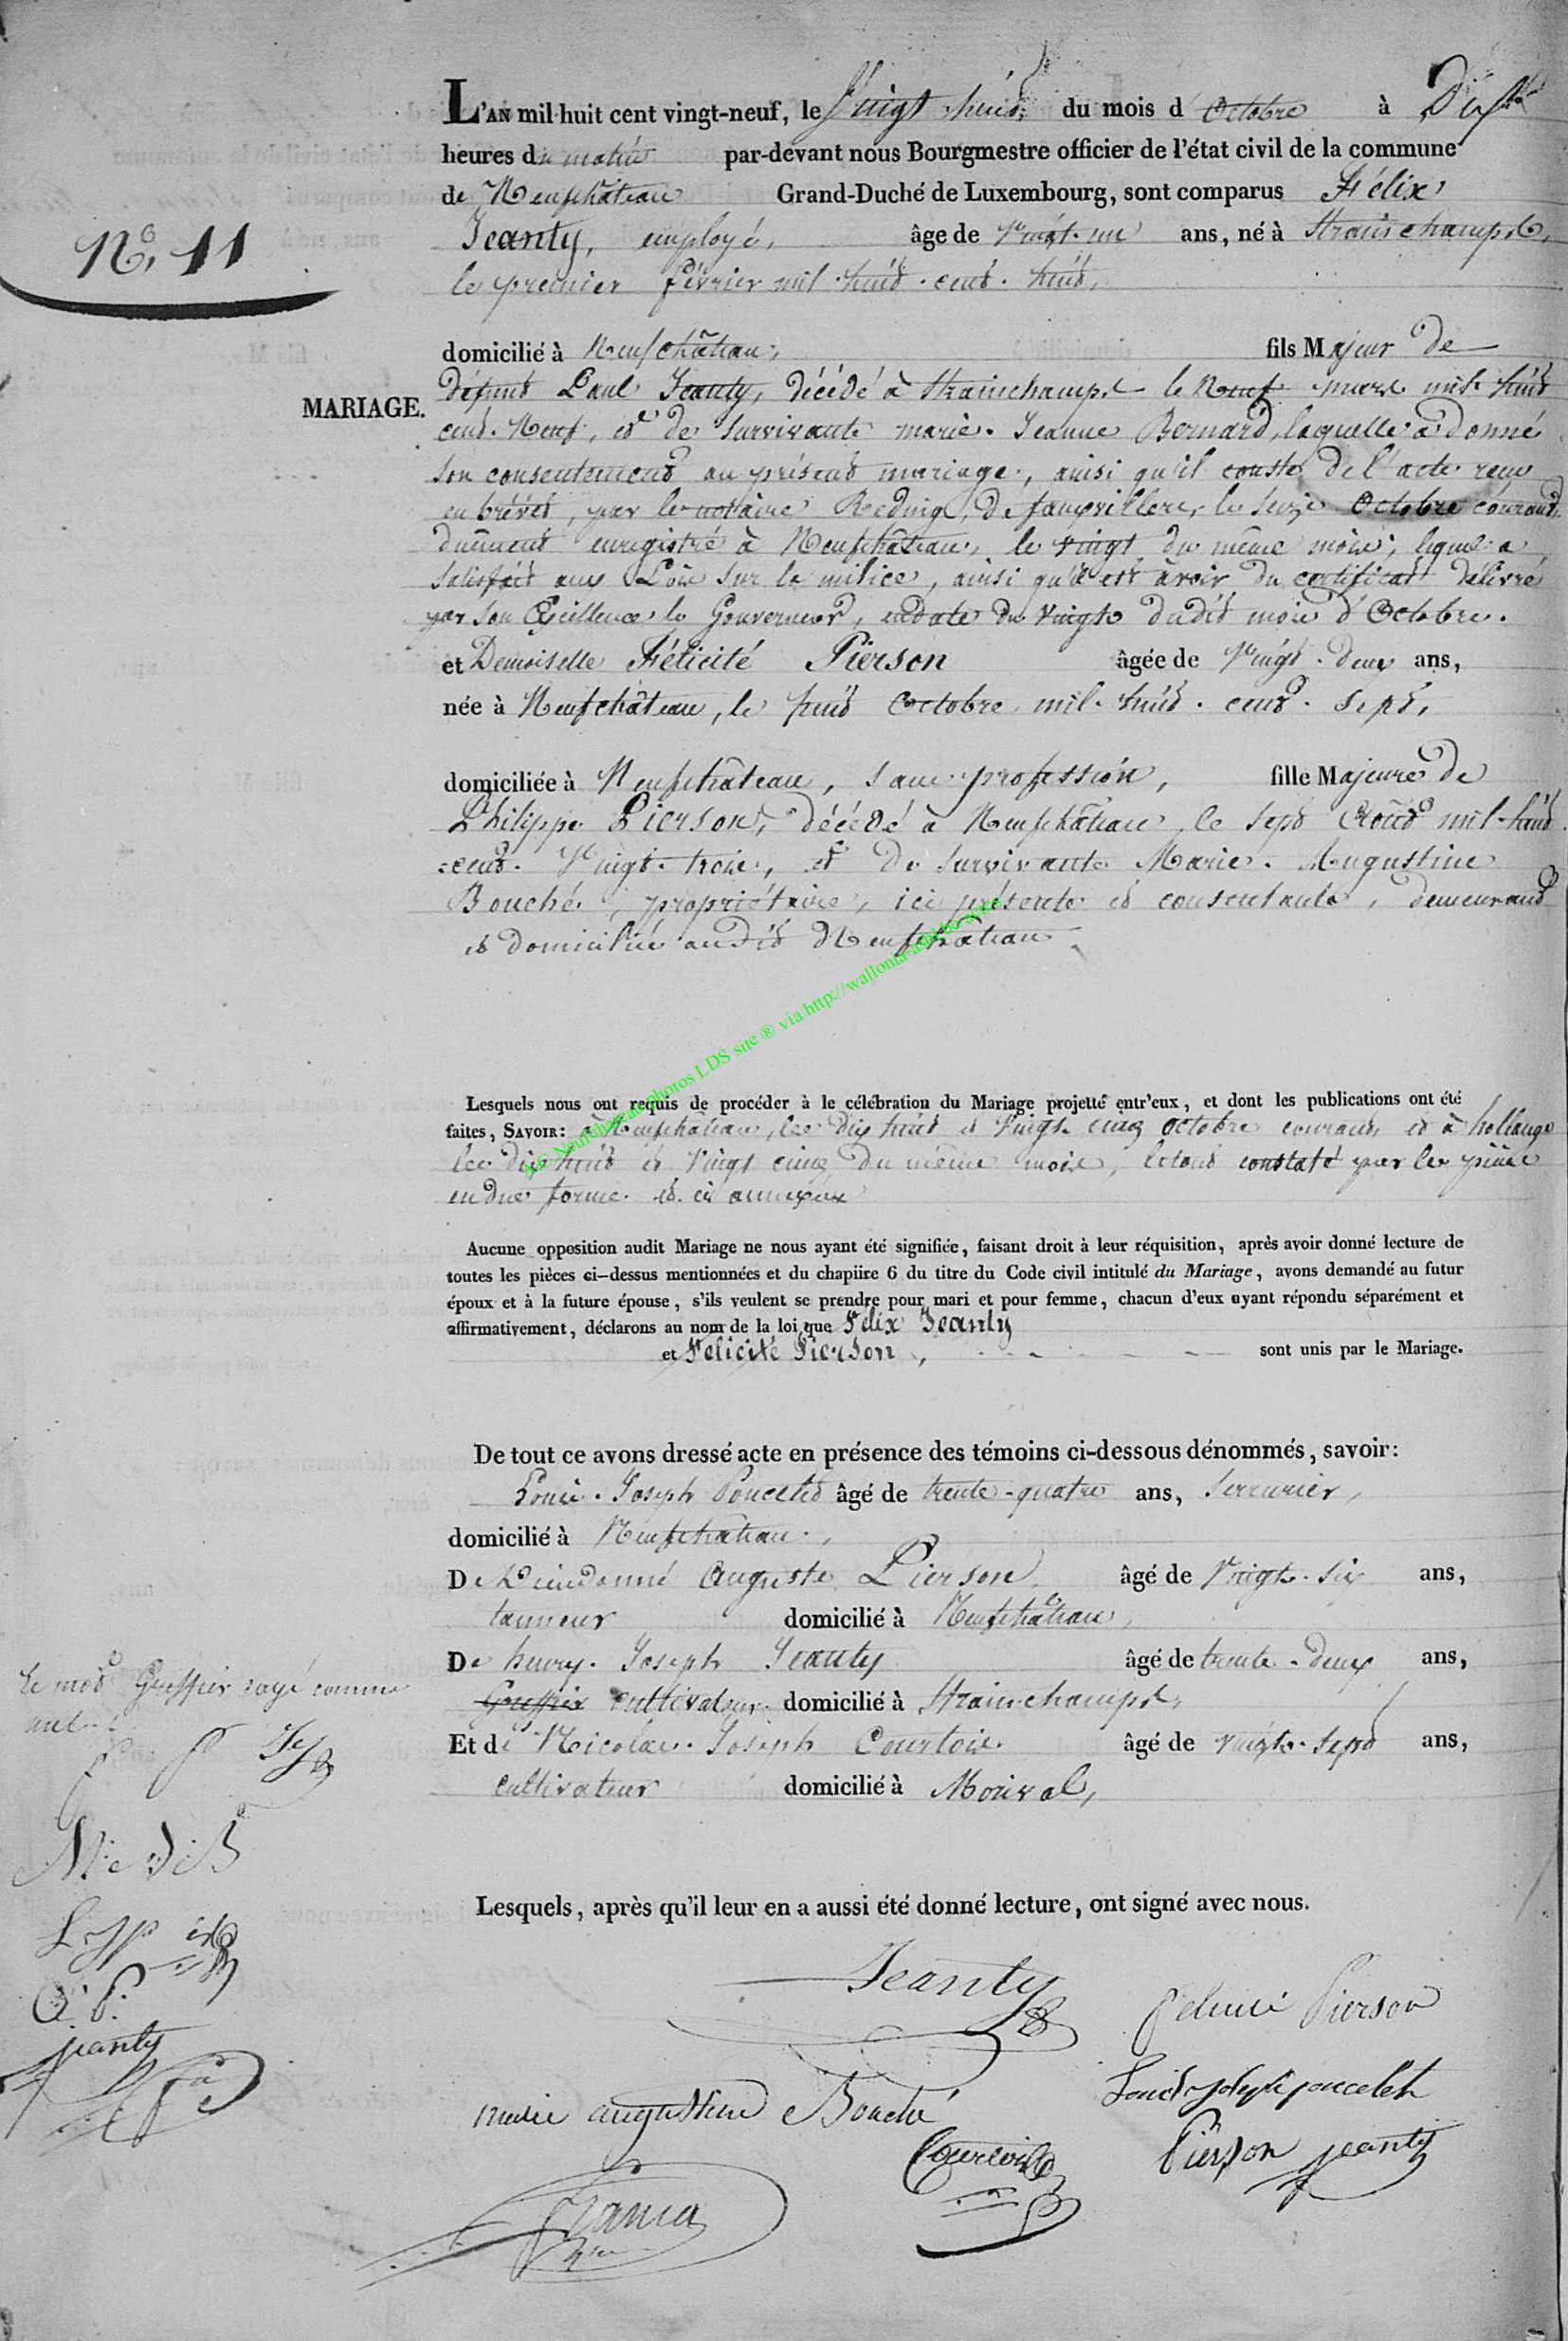 L'AN mil huit cent vingt-neuf, le Vingt huit du mois d'Octobre à Dix
heures du matin par-devant nous Bourgmestre officier de l'état civil de la commune
de Neufchâteau Grand-Duché de Luxembourg, sont comparus Félix
Jeanty, employé, âge de Vingt-un ans, né à Strainchamps,
N.o 11
le premier février mil-huit-cent-huit,
domicilié à Neufchâteau, fils Majeur de
MARIAGE.
défunt Paul Jeanty, décédé à Strainchamps le Neuf mars mil huit
cent-Neuf, et de survivante marie-Jeanne Bernard, laquelle a donné
son consentement au présent mariage, ainsi qu'il conste de l'acte reçu
en brévet, par le notaire Reding, de fauxvillers, le seize Octobre courant,
duement enregistré à Neufchâteau, le vingt du même mois; lequel a
satisfait aux Lois sur la milice, ainsi qu'il est à voir du certificat délivré
par Son Excellence le Gouverneur, en date du Vingt dudit mois d'Octobre.
et Demoiselle Félicité Pierson âgée de Vingt-deux ans,
née à Neufchâteau, le huit Octobre mil-huit-cent-sept,
domiciliée à Neufchâteau, sans profession, fille Majeure de
Philippe Pierson, décédé à Neufchâteau le sept Août mil-huit
-cent-Vingt-trois, et de survivante Marie-Augustine
Bouché, propriétaire, ici présente et consentante, demeurant
et domiciliée audit Neufchâteau
AC Neufchateau photos LDS site ® via http://wallonia-asbl
Lesquels nous ont requis de procéder à le célébration du Mariage projetté entr'eux, et dont les publications ont été
faites, SAVOIR: à Neufchâteau, les dix huit et Vingt cinq octobre courant, et à hollange
les dix huit et Vingt cinq du même mois, le tout constaté par les pièces
en due forme et ci annexées
Aucune opposition audit Mariage ne nous ayant été signifiée, faisant droit à leur réquisition, après avoir donné lecture de
toutes les pièces ci-dessus mentionnées et du chapiire 6 du titre du Code civil intitulé du Mariage, avons demandé au futur
époux et à la future épouse, s'ils veulent se prendre pour mari et pour femme, chacun d'eux ayant répondu séparément et
affirmativement, déclarons au nom de la loi que Félix Jeanty
et Félicité Pierson, sont unis par le Mariage.
De tout ce avons dressé acte en présence des témoins ci-dessous dénommés, savoir:
Louis-Joseph Poncelet âgé de trente-quatre ans, Serrurier,
domicilié à Neufchâteau,
De Dieudonné Auguste Pierson âgé de Vingt-six ans,
tanneur domicilié à Neufchâteau,
De henry-Joseph Jeanty âgé de trente-deux ans,
Le mot Greffier rayé comme
nul
Greffier cultivateur domicilié à Strainchamps,
Et de Nicolas-Joseph Courtois âgé de vingt-sept ans,
cultivateur domicilié à Morival,
Lesquels, après qu'il leur en a aussi été donné lecture, ont signé avec nous.
Jeanty
felicité Pierson
jeanty
Louis joseph poncelet
marie augustine Bouché
Courtois
Pierson jeanty